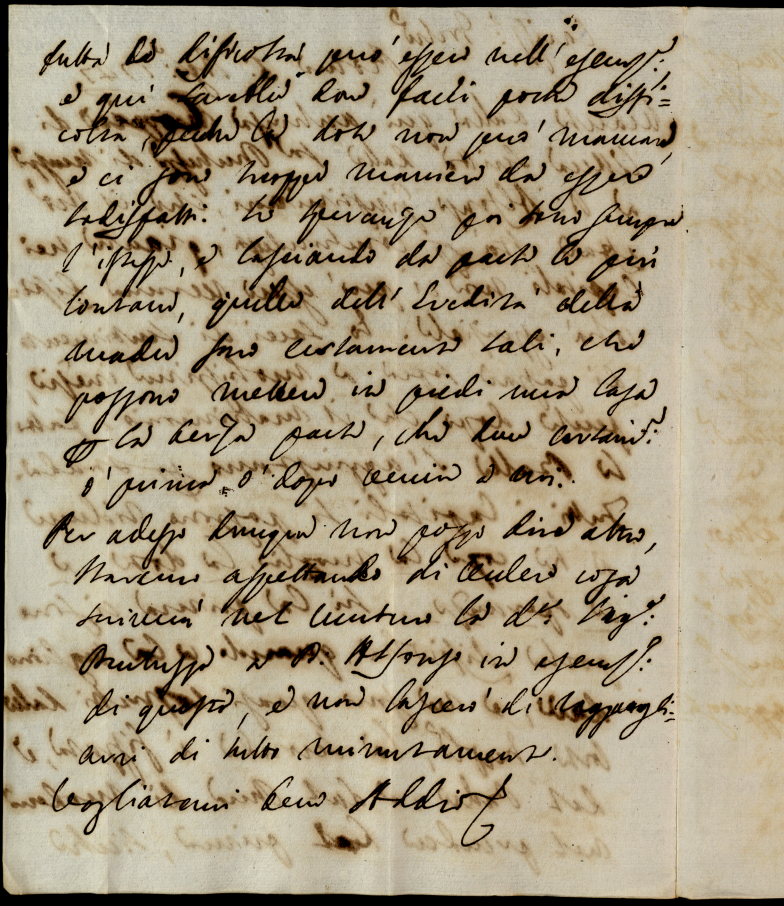 tutta la dificoltà può essere nell'esemp:
e qui sarebbe dove facili poche diffi=
coltà, perche la dote non può mancare,
e ci sono troppe maniere da essere
sodisfatti. Le speranze poi sono sempre
l'istesse, e lasciando da parte le più
lontane, quelle dell'Eredità della
Madre sono certamente tali, che
possono mettere in piedi una Casa
la terza parte, che deve certam:
ò prima, ò dopo venire a noi.
Per adesso dunque non posso dire altro,
Staremo aspettando di vedere cosa
scriverà nel venturo la d.a Sig.a
a D. Alfonso in esemp:
di questo, e non lascierò di ragguagli=
arvi di tutto minutamente.
Vogliatemi bene Addio